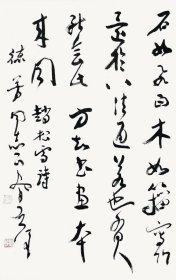 石如飞白木如籀写竹
还于八法通若也有人
能会此方知书画本
来同 赵松雪诗